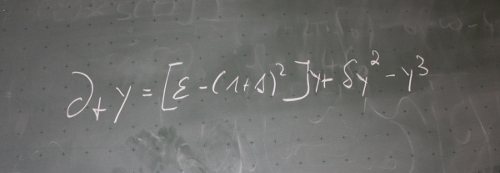 ∂ₜy = [ε - (1+Δ)²]y + δy² - y³